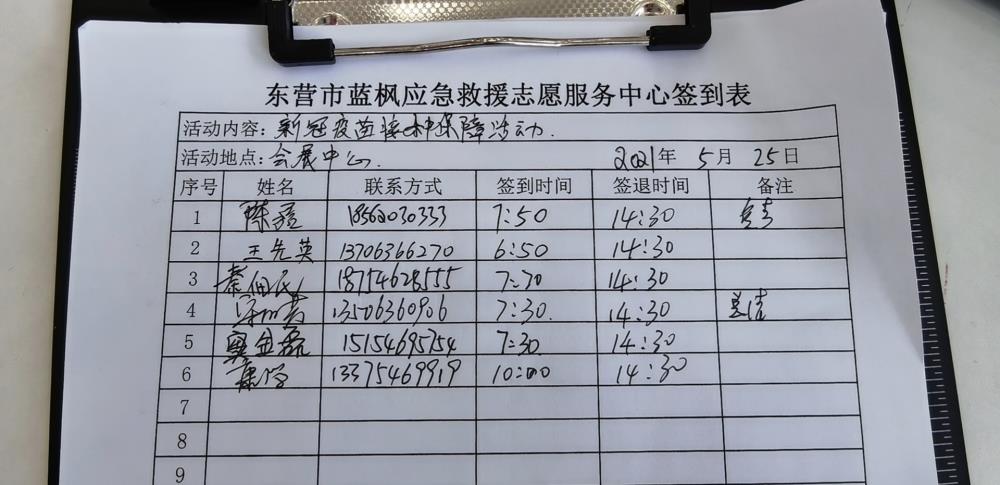 东营市蓝枫应急救援志愿服务中心签到表
活动内容：新冠疫苗接种保障活动.
活动地点：会展中心. 2021年 5月 25日
序号 姓名 联系方式 签到时间 签退时间 备注
1 陈 18562030333 7:50 14:30
2 王先英 13706366270 6:50 14:30
3 秦佃民 18754628555 7:30 14:30
4 13506360906 7:30. 14:30
5 15154695754 7:30 14:30
6 13375469919 10:00 14:30
7
8
9